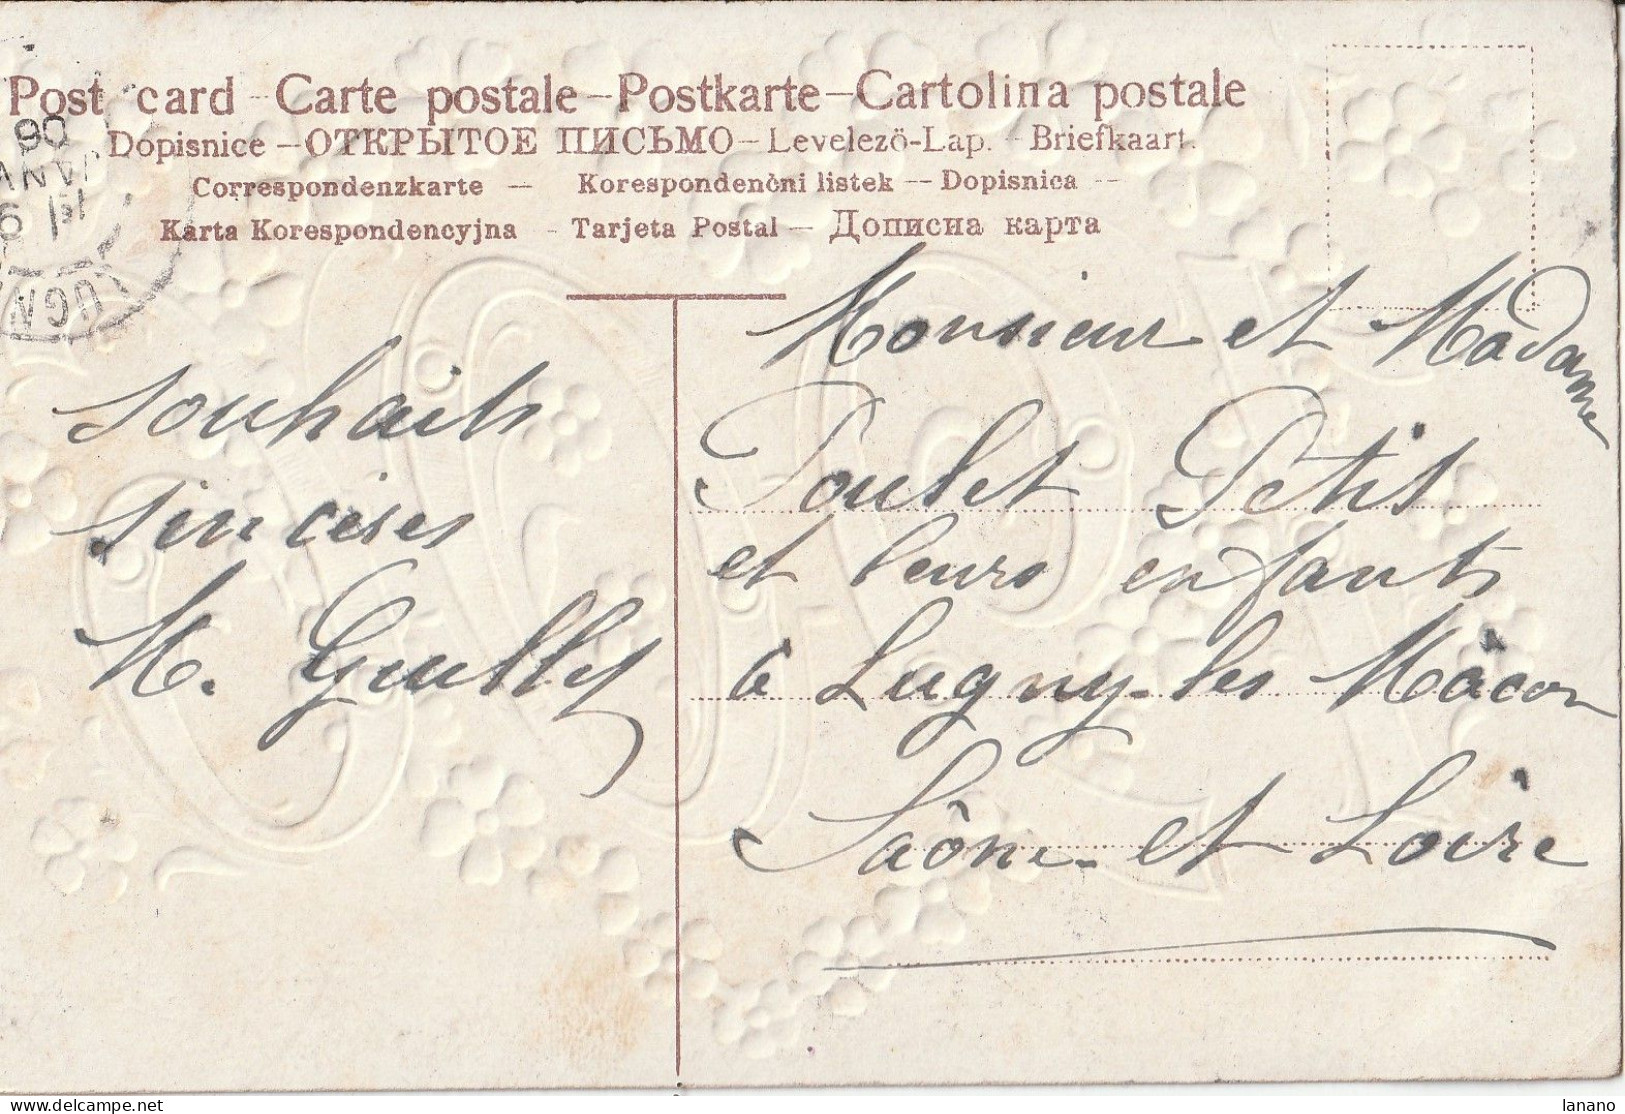 Post card - Carte postale - Postkarte - Cartolina postale
Dopisnice - ОТКРЫТОЕ ПИСЬМО - Levelező-Lap. - Briefkaart.
Correspondenzkarte - Korespondenčni listek - Dopisnica -
Karta Korespondencyjna - Tarjeta Postal - Дописна карта
souhaits
sincères
M. Guilley
Monsieur et Madame
Poulet Petit
et leurs enfants
à Lugny-les Mâcon
Saône-et Loire
06
lanano